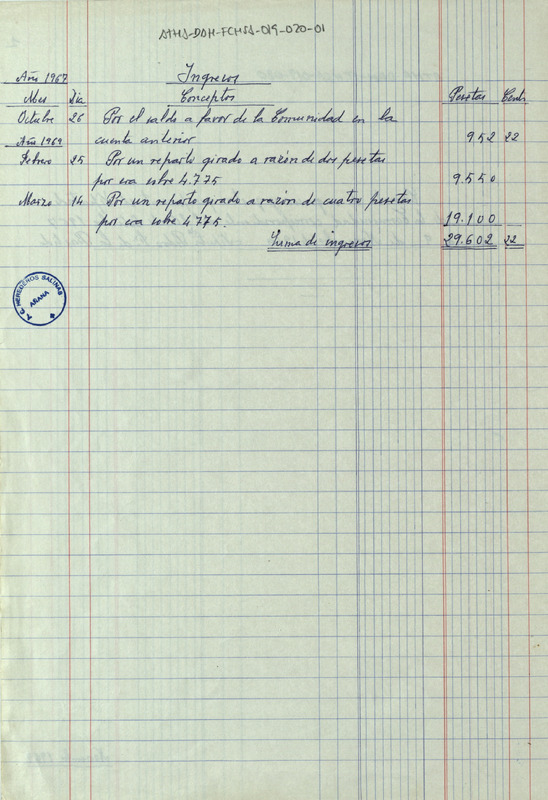 ATHA-DAH-FCHSA-019-020-01
Año 1967 Ingresos
Mes Dia Conceptos Pesetas Cents
Octubre 26 Por el saldo a favor de la Comunidad en la
Año 1969 cuenta anterior 952 22
Febrero 25 Por un reparto girado a razón de dos pesetas
por era sobre 4.775 9.550
Marzo 14 Por un reparto girado a razón de cuatro pesetas
por era sobre 4775. 19.100
Suma de ingresos 29.602 22
A. C. HEREDEROS SALINAS
AÑANA